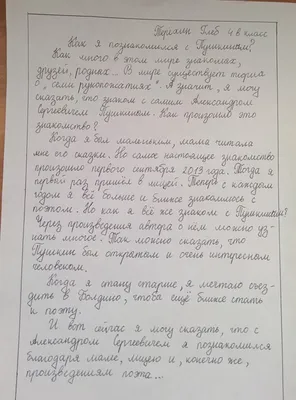 Терёхин Глеб 4 в класс
Как я познакомился с Пушкиным?
Как много в этом мире знакомых,
друзей, родных... В мире существует теория
о „семи рукопожатиях". А значит, я могу
сказать, что знаком с самим Александром
Сергеевичем Пушкиным. Как произошло это
знакомство?
Когда я был маленьким, мама читала
мне его сказки. Но самое настоящее знакомство
произошло первого сентября 2013 года. Когда я
первый раз пришёл в лицей. Теперь с каждым
годом я всё больше и ближе знакомлюсь с
поэтом. Но как я всё же знаком с Пушкиным?
Через произведения автора о нём можно уз-
нать многое. Так можно сказать, что
Пушкин был открытым и очень интересным
человеком.
Когда я стану старше, я мечтаю съез-
дить в Болдино, чтобы ещё ближе стать
к поэту.
И вот сейчас я могу сказать, что с
Александром Сергеевичем я познакомился
благодаря маме, лицею и, конечно же,
произведениям поэта...